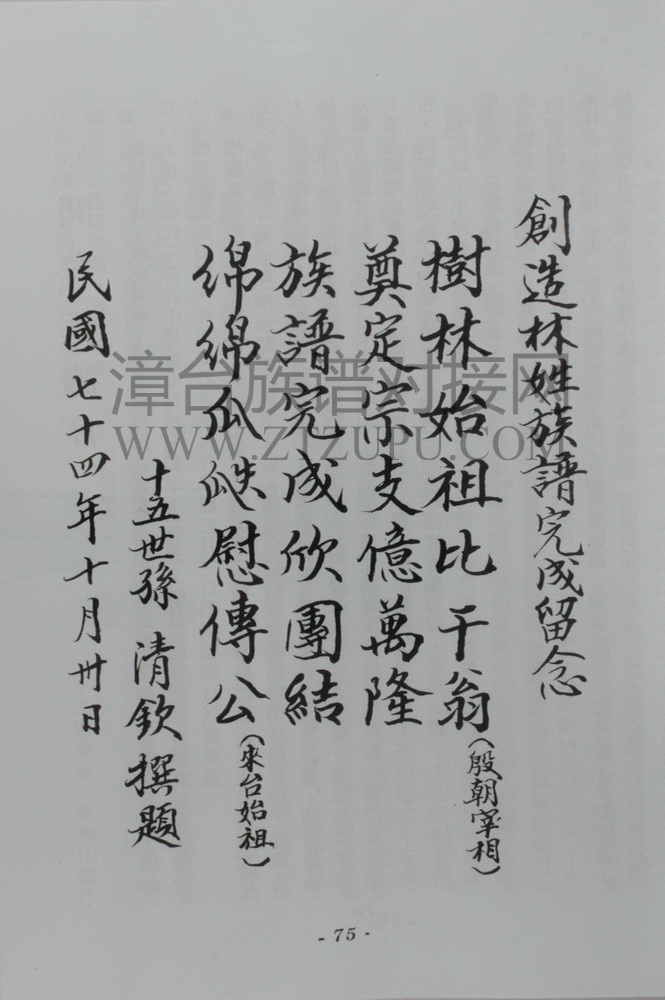 創造林姓族譜完成留念
樹林始祖比干翁(殷朝宰相)
奠定宗支億萬隆
族譜完成欣團結
綿綿瓜瓞慰傳公(來台始祖)
十五世孫 清欽 撰題
民國七十四年十月卅日
漳台族谱对接网
WWW.ZTZUPU.COM
- 75 -